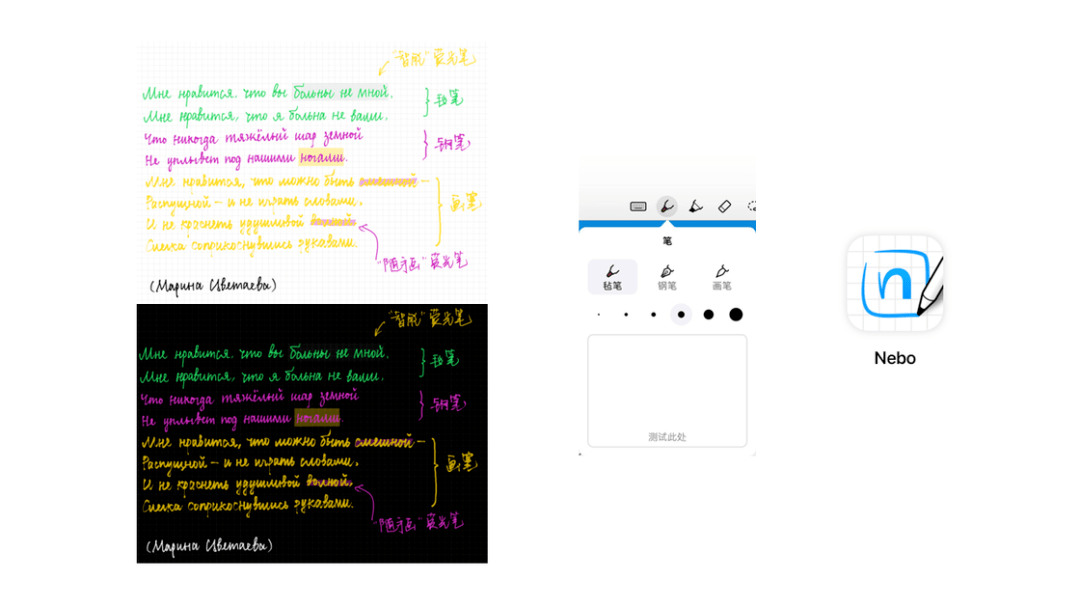 "智能" 荧光笔
Мне нравится. что вы больны не мной.
Мне нравится, что я больна не вами.
毡笔
Что никогда тяжёлый шар земной
Не уплывет под нашими ногами.
钢笔
Мне нравится, что можно быть смешной —
Распущной — и не играть словами.
И не краснеть удушливой
Слегка соприкоснувшись рукавами.
画笔
"随手画" 荧光笔
(Марина Цветаева)
"智能" 荧光笔
Мне нравится. что вы больны не мной.
Мне нравится, что я больна не вами.
毡笔
Что никогда тяжёлый шар земной
Не уплывет под нашими ногами.
钢笔
Мне нравится, что можно быть смешной —
Распущной — и не играть словами.
И не краснеть удушливой волной,
Слегка соприкоснувшись рукавами.
画笔
"随手画" 荧光笔
(Марина Цветаева)
笔
毡笔 钢笔 画笔
测试此处
n
Nebo